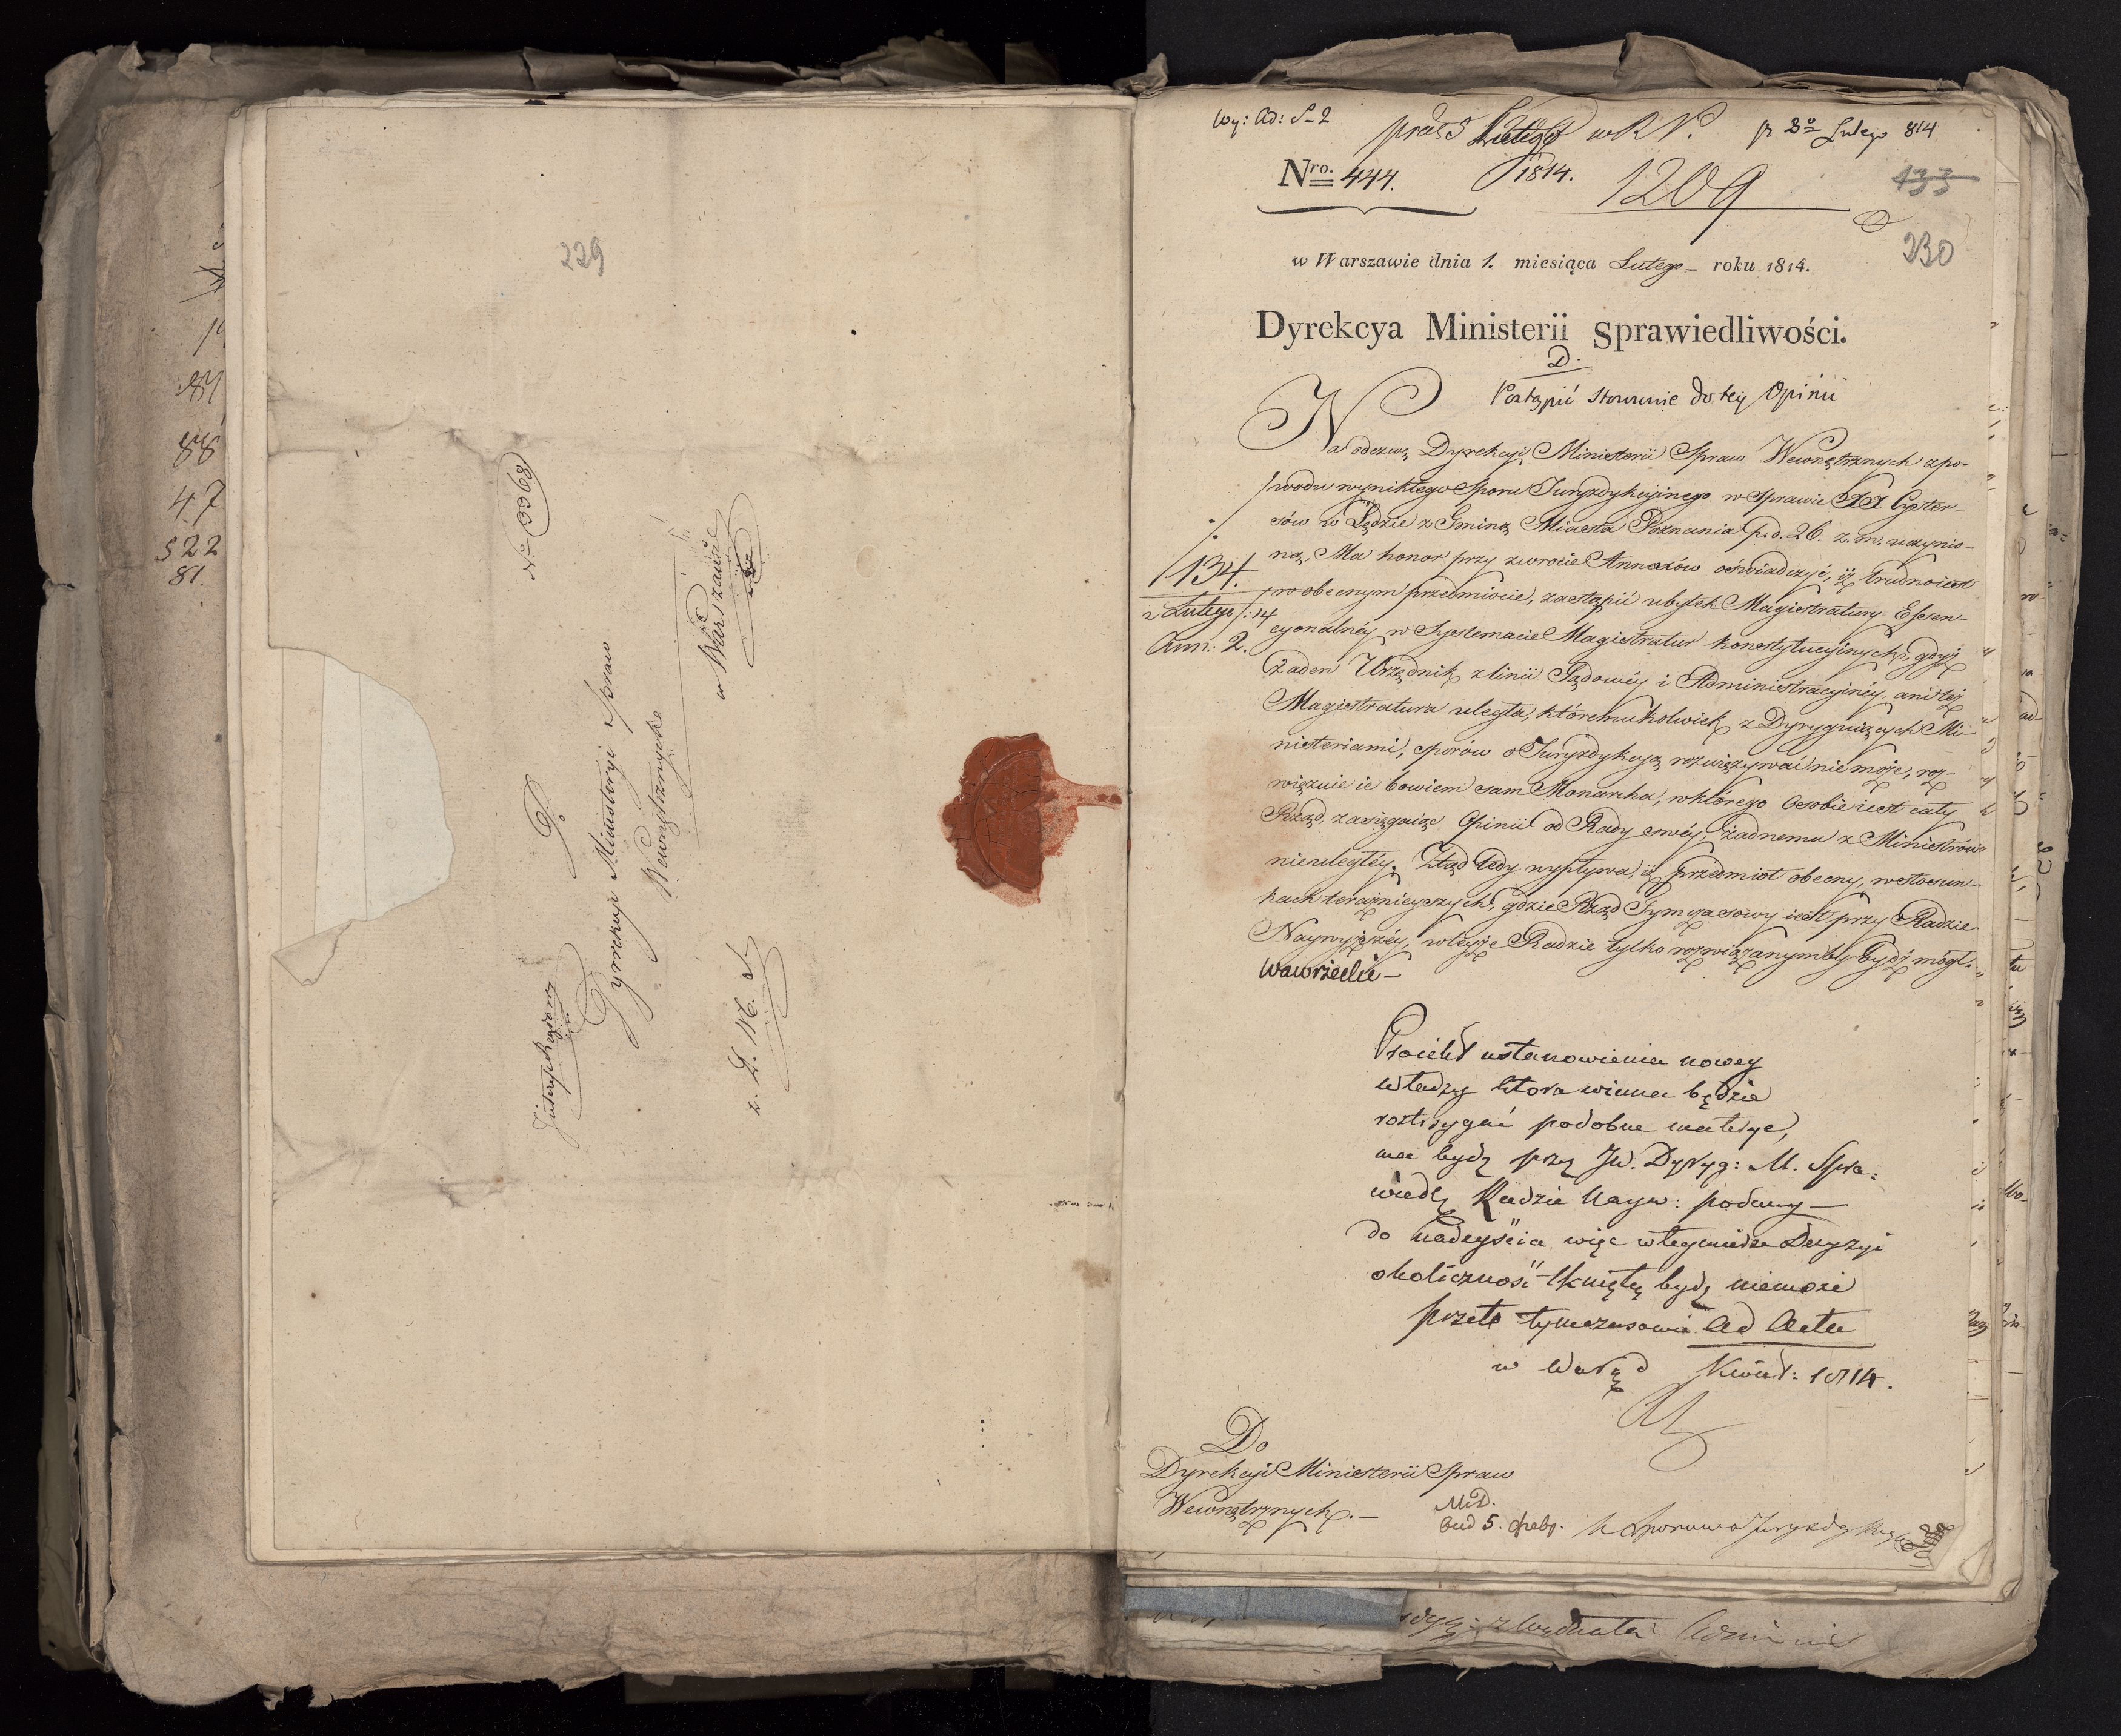 229
No 3368
Do
Dyrekcyi Ministeryi Spraw
Wewnętrznych
w Warszawie
z. D. M. S.
88
47
522
81.
Wy: Ad: S-2
w R N.
Lutego 814
Nro. 444.
1814.
1209
133
230
w Warszawie dnia 1. miesiąca Lutego – roku 1814.
Dyrekcya Ministerii Sprawiedliwości.
D.
Postąpić stosownie do tey Opinii
Na odezwę Dyrekcyi Ministerii Spraw Wewnętrznych z po-
wodu wynikłego Sporu Juryzdykcyinego w Sprawie XX Cyster-
sów w Lędzie z Gminą Miasta Poznania p. d. 26. z. m. uczynio-
ną, Ma honor przy zwrocie Annexów oświadczyć, iż trudno iest
w obecnym przedmiocie, zastąpić ubytek Magistratury Essen-
cyonalnéy w Systemacie Magistratur konstytucyinych, gdyż
żaden Urzędnik z linii Sądowéy i Administracyinéy, ani téż
Magistratura uległa, któremukolwiek z Dyryguiących Mi-
nisteriami, sporów o Juryzdykcyą rozwięzywać nie może, roz-
więzuie ie bowiem sam Monarcha, w którego Osobie iest cały
Rząd, zasięgaiąc Opinii od Rady swéy, żadnemu z Ministrów
nieuległéy. Ztąd tedy wypływa, iż przedmiot obecny, w stosun-
kach teraźnieyszych, gdzie Rząd Tymczasowy iest przy Radzie
Naywyższéy, w teyże Radzie tylko rozwiązanym by bydź mógł.
Wawrzecki –
134.
2 Lutego /: 14
Ann: 2.
Proiekt ustanowienia nowey
władzy która winna będzie
roztrzygać podobne materye,
ma bydź przez JW. Dyryg: M. Spra:
wiedl Radzie Nayw: podany –
do nadeyścia więc w tey mierze Decyzyi
okoliczność tknięta bydź niemoże
przeto tymczasowie Ad Acta
w Warsz d Kwiet: 1814.
Do
Dyrekcyi Ministerii Spraw
Wewnętrznych. –
M.D.
5. Febr.